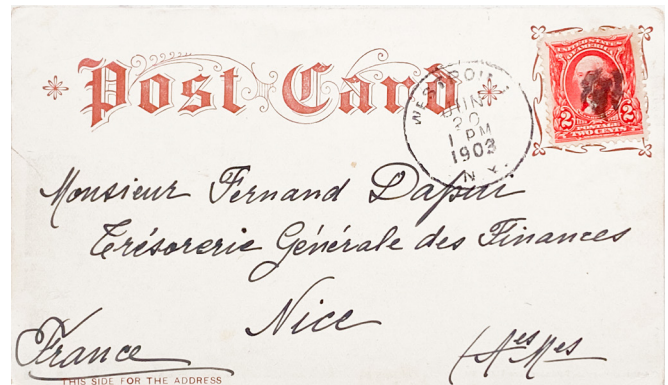 Post Card
WEST TROY
JUN
20
1 PM
1903
N.Y.
UNITED STATES
OF AMERICA
2 2
POSTAGE
TWO CENTS
Monsieur Fernand
Trésorerie Générale des Finances
Nice
France
(Aes Mes
THIS SIDE FOR THE ADDRESS